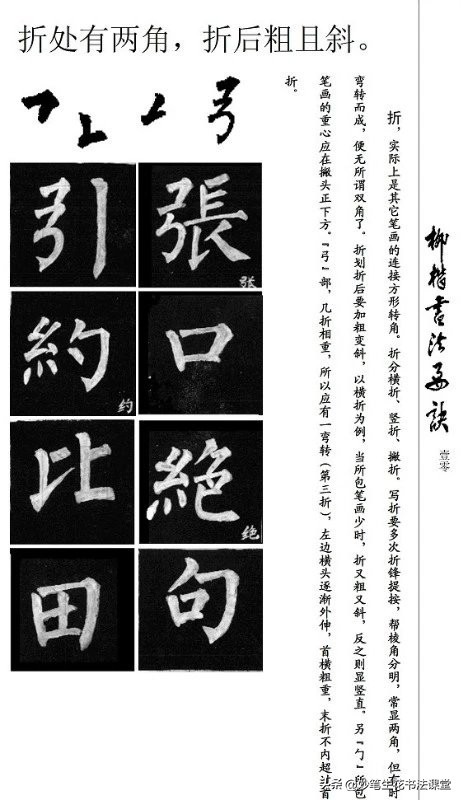 折处有两角，折后粗且斜。
柳楷書法要訣
壹零
折，实际上是其它笔画的连接方形转角。折分横折、竖折、撇折。写折要多次折锋提按，帮棱角分明，常显两角，但有时
弯转而成，便无所谓双角了。折划折后要加粗变斜，以横折为例，当所包笔画少时，折又粗又斜，反之则显竖直。另『勹』所包
笔画的重心应在撇头正下方。『弓』部，几折相重，所以应有一弯转（第三折），左边横头逐渐外伸，首横粗重，末折不内超过首
折。
引 張 张
約 约 口
比 絶 绝
田 句
头条 @妙笔生花书法课堂